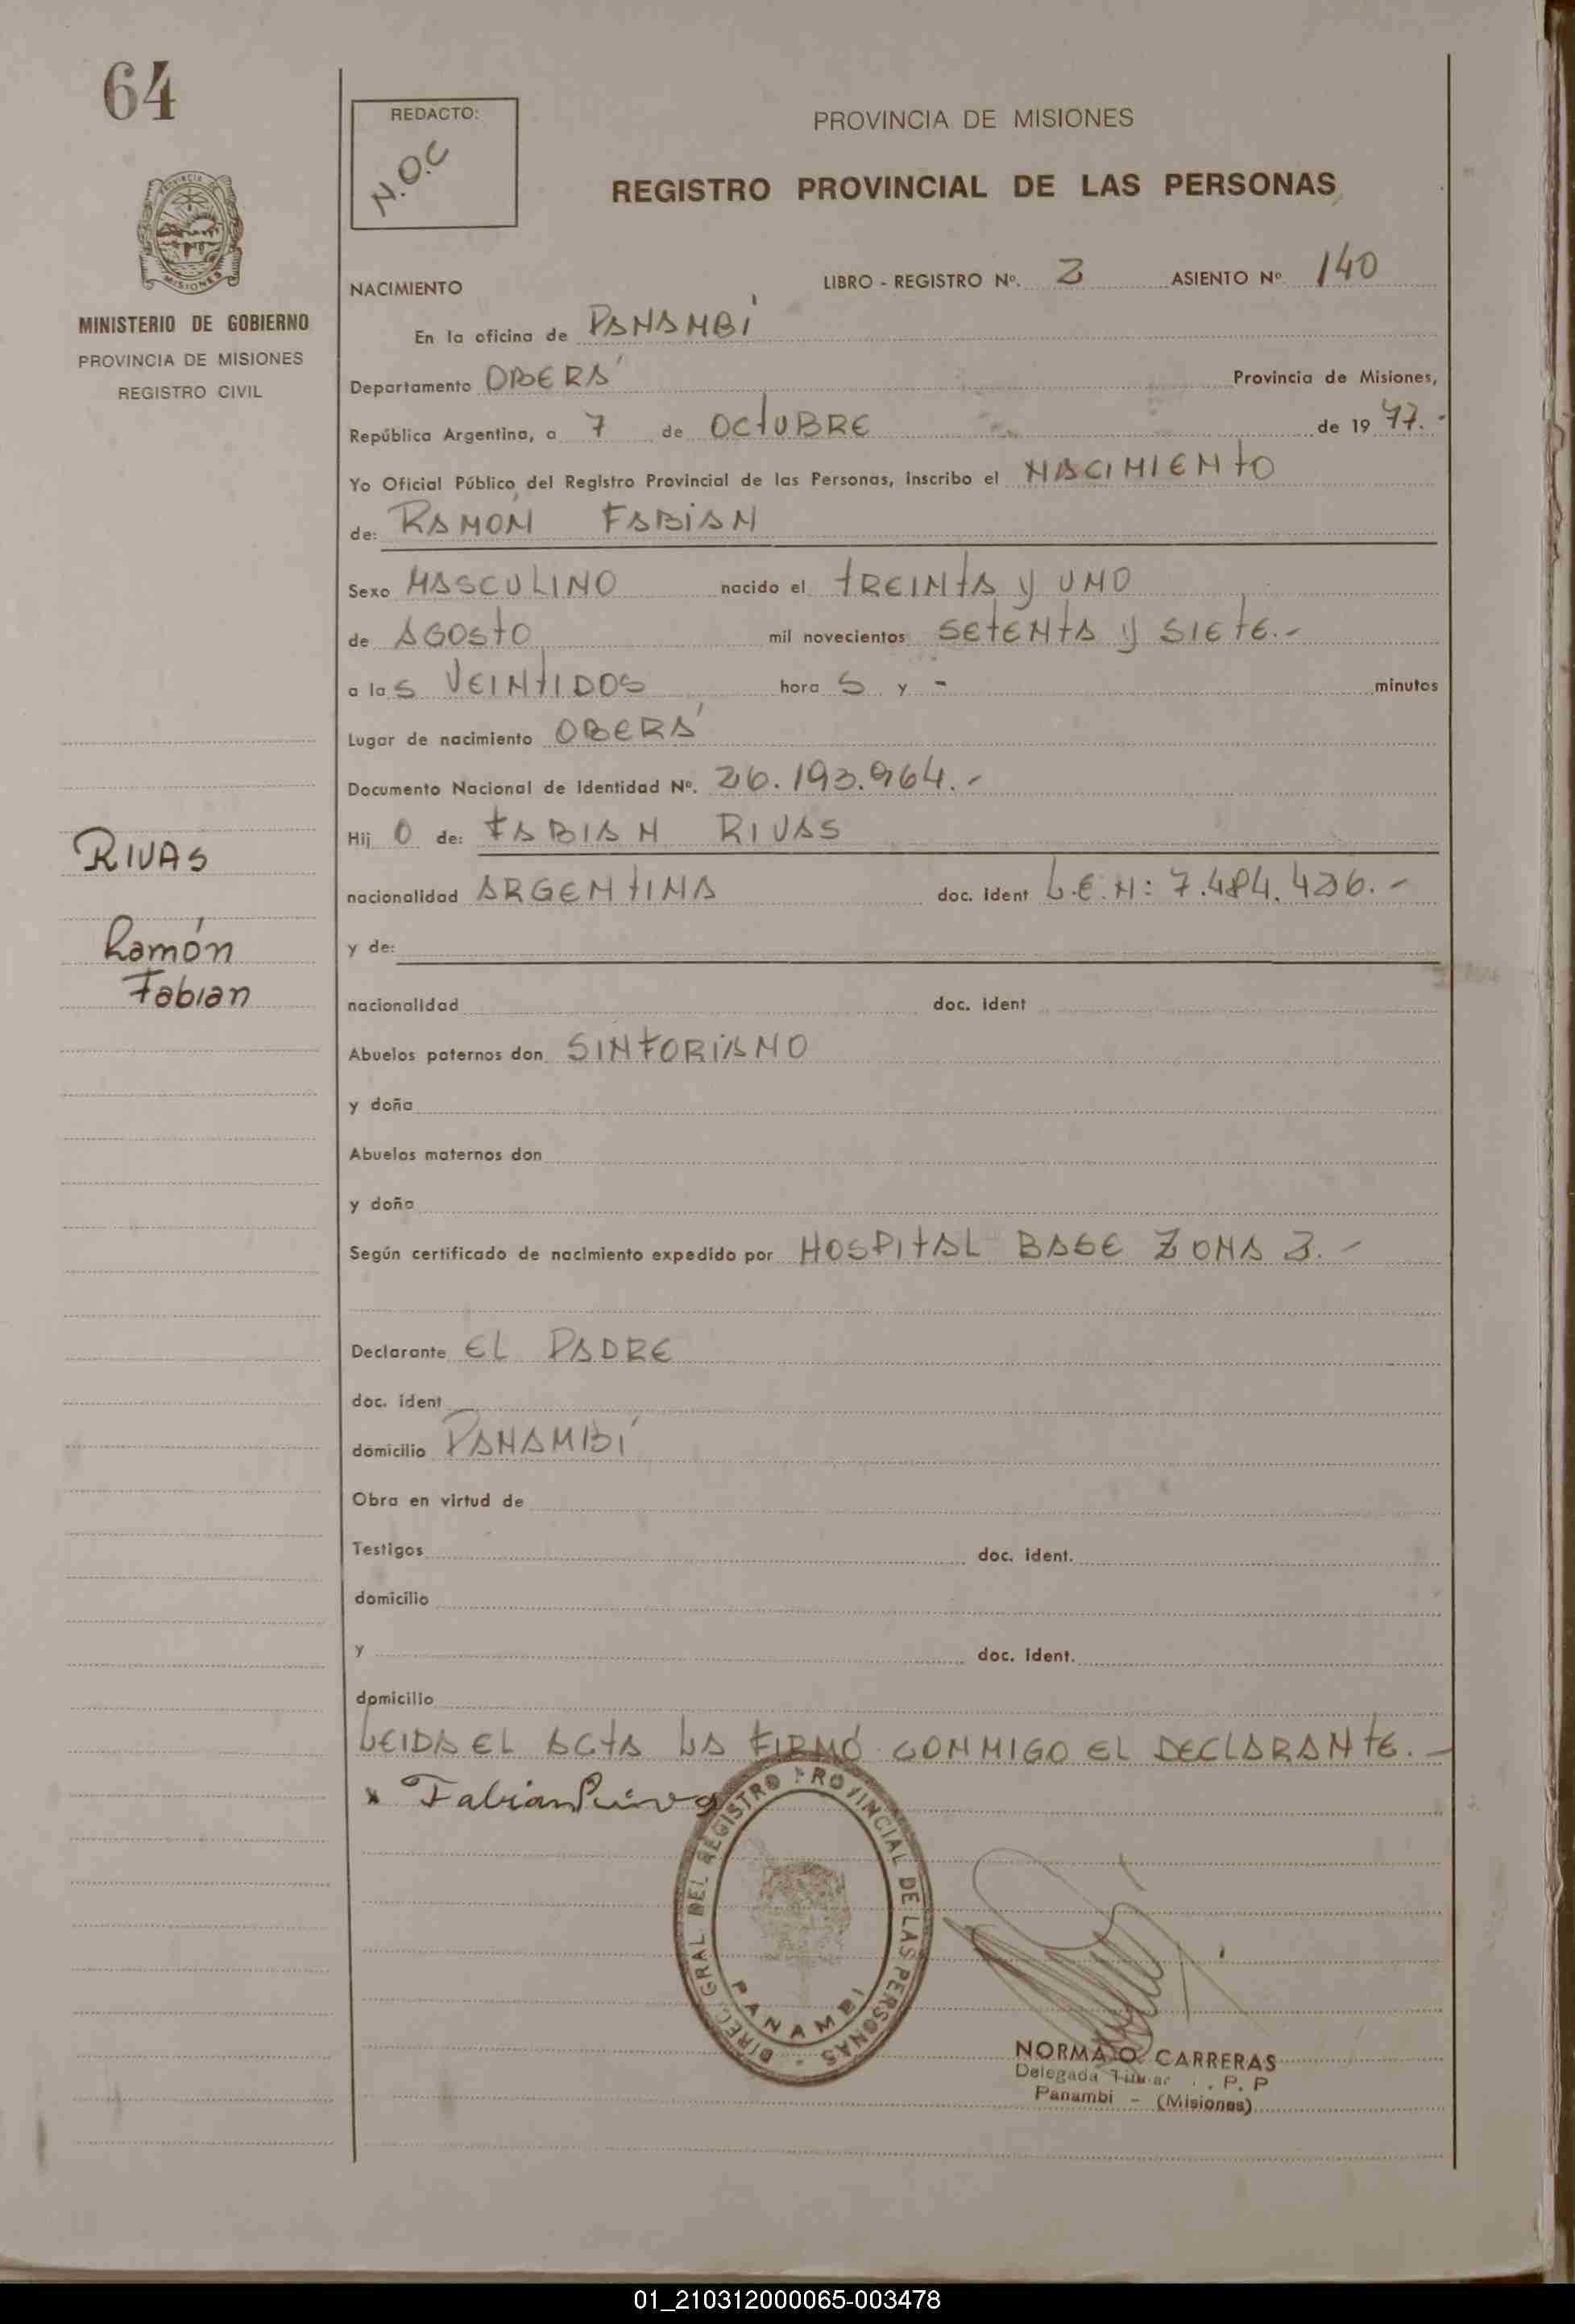 64
REDACTO:
N.O.C
PROVINCIA DE MISIONES
REGISTRO PROVINCIAL DE LAS PERSONAS
PROVINCIA DE
MISIONES
MINISTERIO DE GOBIERNO
PROVINCIA DE MISIONES
REGISTRO CIVIL
NACIMIENTO LIBRO - REGISTRO Nº. 2 ASIENTO Nº 140
En la oficina de PANAMBÍ
Departamento OBERÁ Provincia de Misiones,
República Argentina, a 7 de OCTUBRE de 19 77.-
Yo Oficial Público del Registro Provincial de las Personas, inscribo el NACIMIENTO
de: RAMON FABIAN
Sexo MASCULINO nacido el TREINTA y UNO
de AGOSTO mil novecientos SETENTA y SIETE.-
a las VEINTIDOS hora S y - minutos
Lugar de nacimiento OBERÁ
Documento Nacional de Identidad Nº. 26.193.964.-
Hij O de: FABIAN RIVAS
nacionalidad ARGENTINA doc. ident L.E.N: 7.484.426.-
y de:
nacionalidad doc. ident
Abuelos paternos don SINFORIANO
y doña
Abuelos maternos don
y doña
Según certificado de nacimiento expedido por HOSPITAL BASE ZONA 3.-
Declarante EL PADRE
doc. ident
domicilio PANAMBÍ
Obra en virtud de
Testigos doc. ident.
domicilio
y doc. ident.
domicilio
LEIDA EL ACTA LA FIRMÓ CONMIGO EL DECLARANTE.-
x Fabian Rivas
RIVAS
Ramón
Fabian
DIREC. GRAL DEL REGISTRO PROVINCIAL DE LAS PERSONAS
PANAMBI
NORMA O. CARRERAS
Delegada Titular P. P
Panambi - (Misiones)
01_210312000065-003478